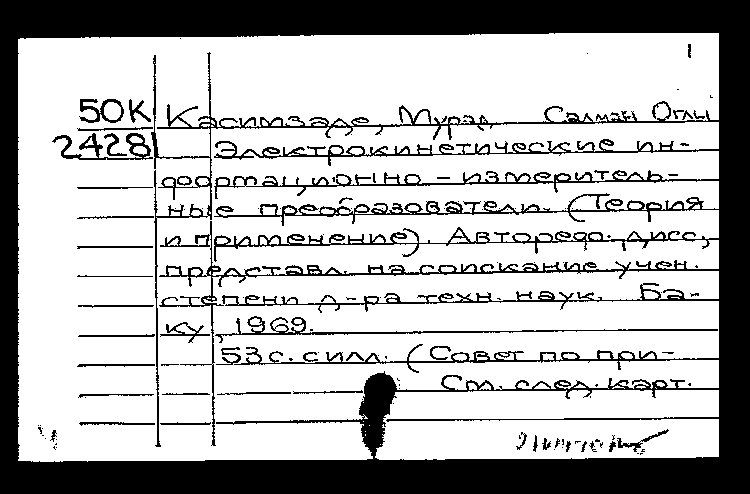 1
50К Касимзаде, Мурад Салман Оглы
2428 Электрокинетические ин-
формационно-измеритель-
ные преобразователи. (Теория
и применение). Автореф. дисс.,
представл. на соискание учен.
степени д-ра техн. наук. Ба-
ку, 1969.
53 с. с илл. (Совет по при-
См. след. карт.